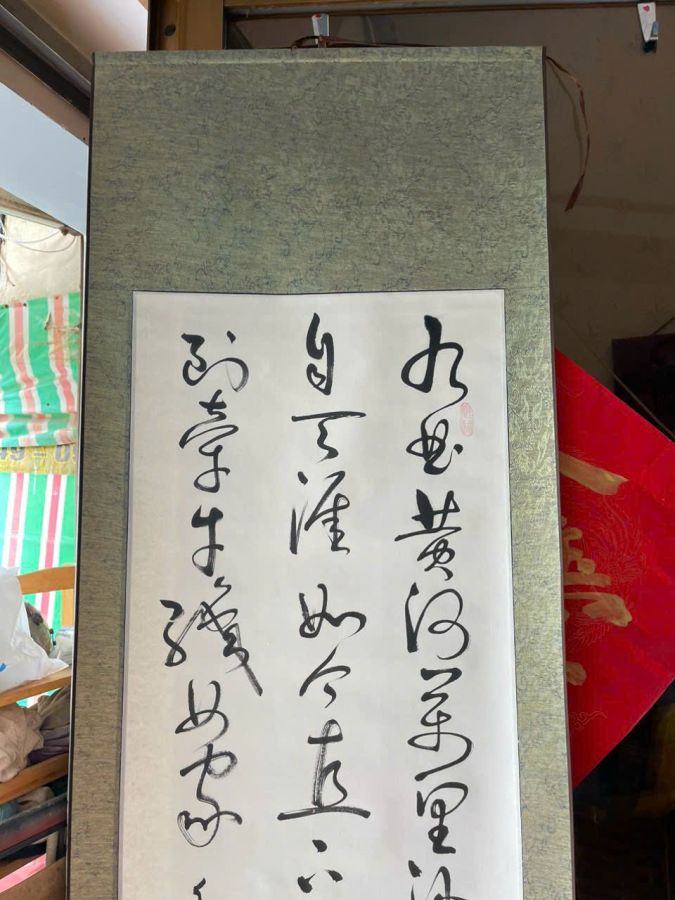 九曲黄河萬里沙
自天涯如今直上
到牽牛織女家